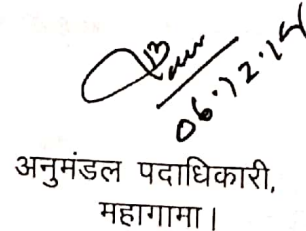 06.12.14
अनुमंडल पदाधिकारी,
महागामा।